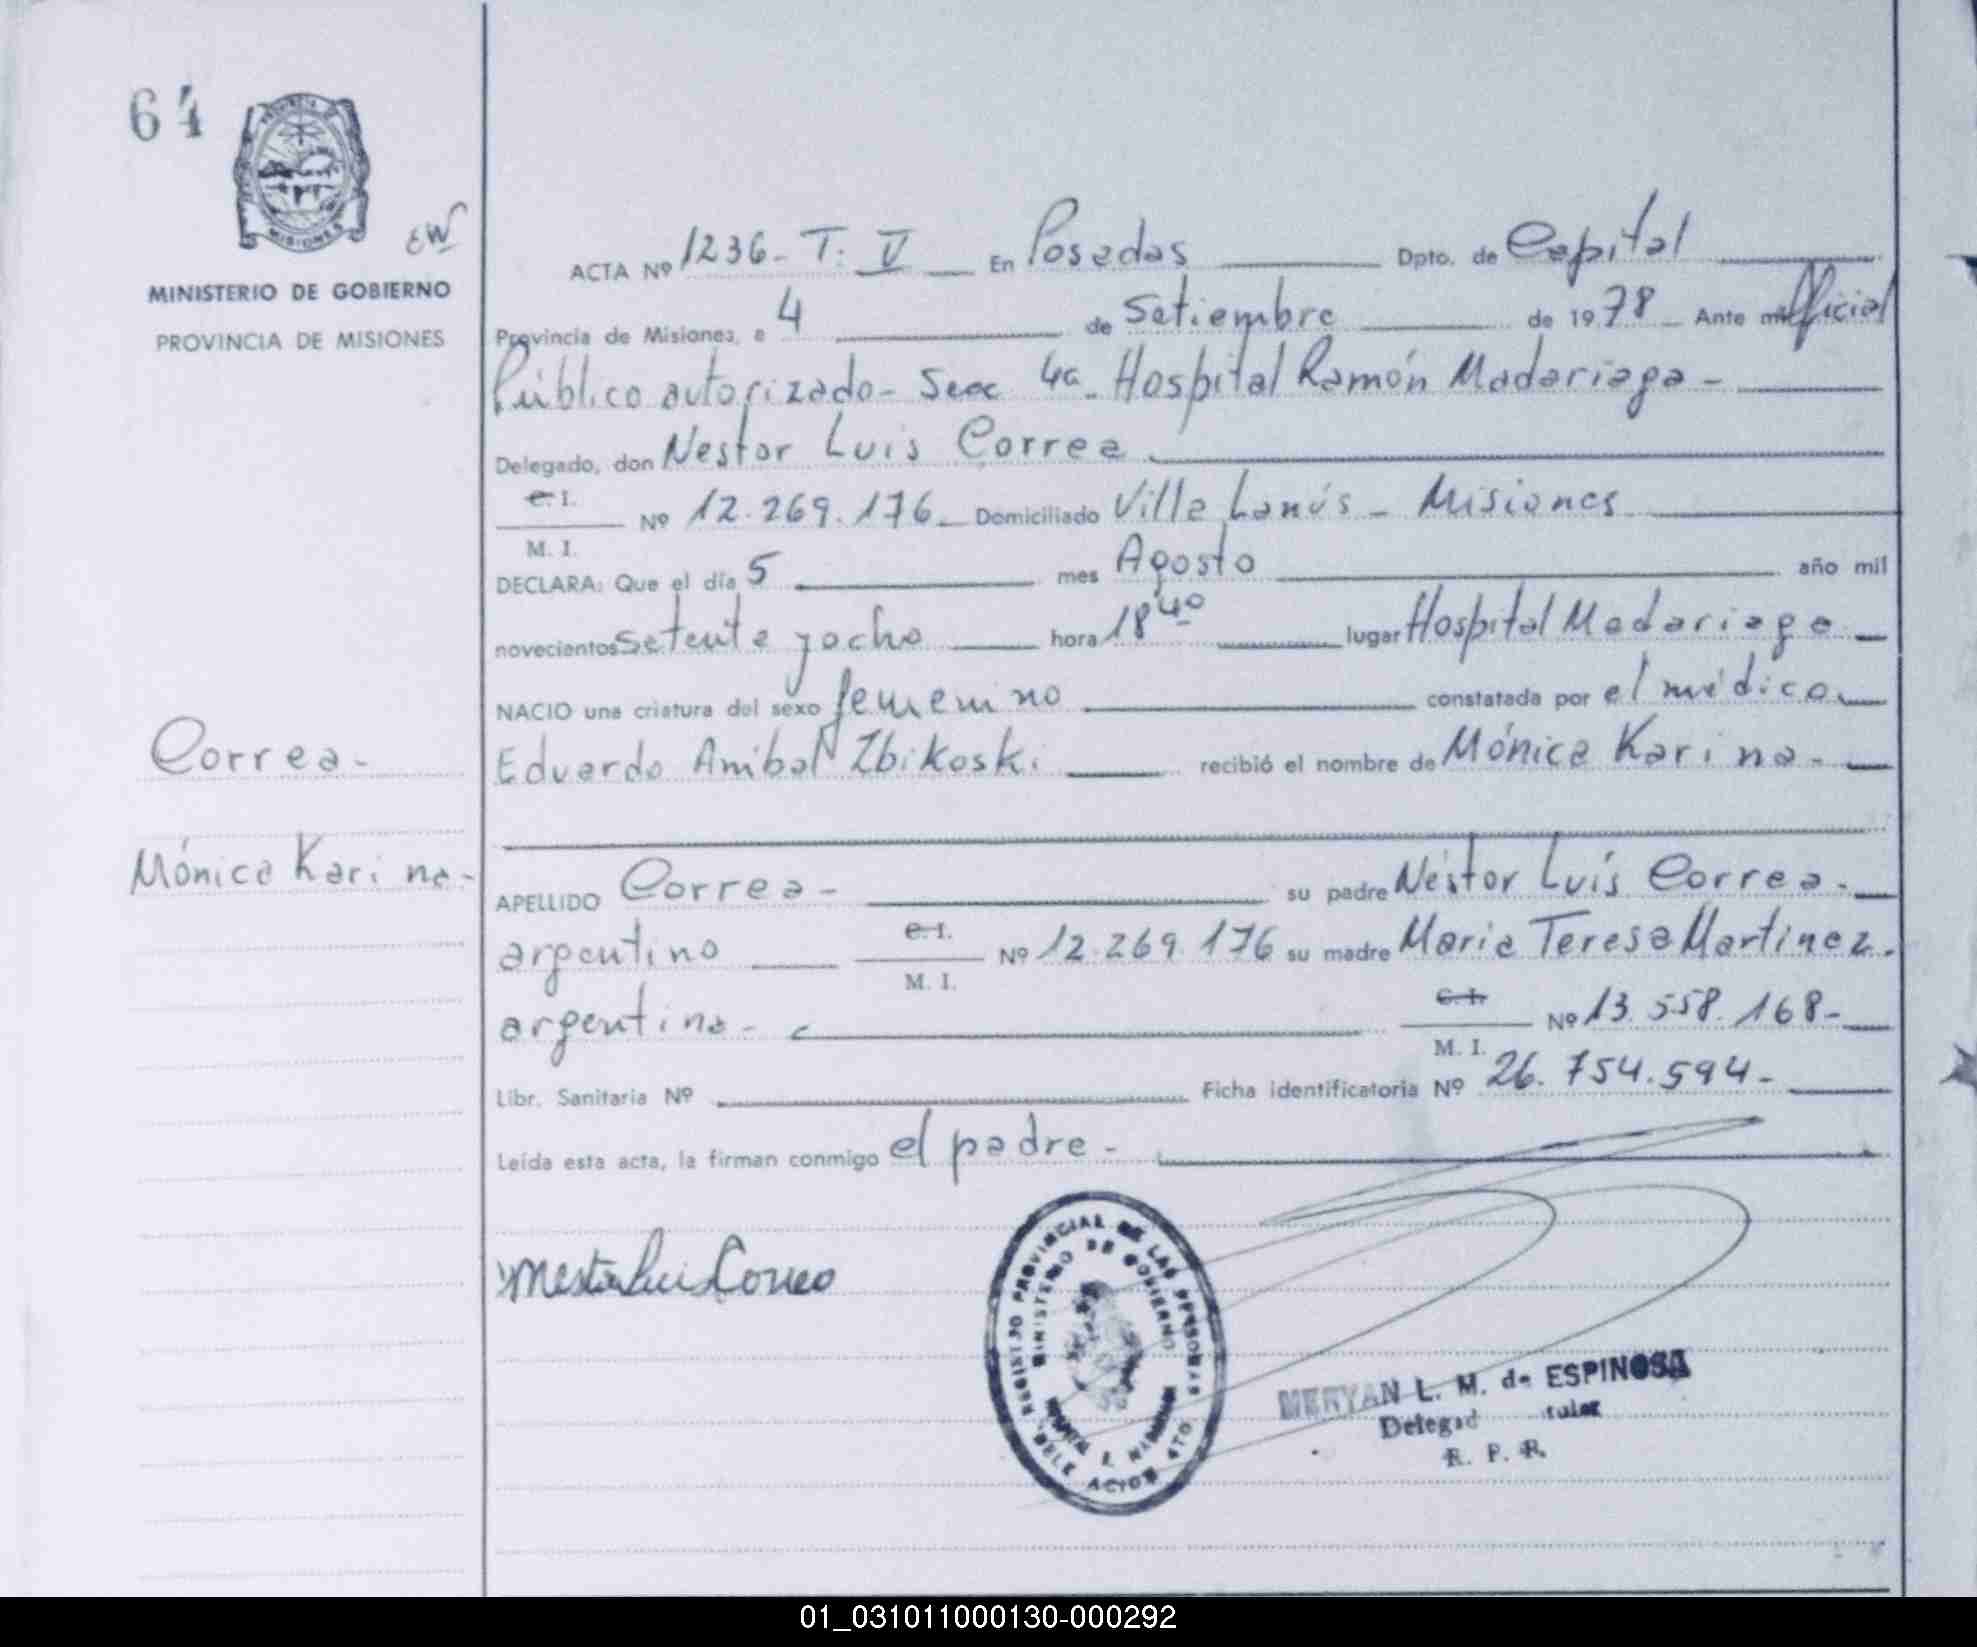 64
PROVINCIA DE
MISIONES
EW
MINISTERIO DE GOBIERNO
PROVINCIA DE MISIONES
Correa-
Mónica Karina-
ACTA Nº 1236- T: V En Posadas Dpto. de Capital
Provincia de Misiones, a 4 de Setiembre de 1978 Ante mí Oficial
Público autorizado- Secc 4a- Hospital Ramón Madariaga-
Delegado, don Nestor Luis Correa
C. I.
Nº 12.269.176- Domiciliado Villa Lanús- Misiones
M. I.
DECLARA: Que el día 5 mes Agosto año mil
novecientos setenta y ocho hora 18 40 lugar Hospital Madariaga
NACIO una criatura del sexo femenino constatada por el médico
Eduardo Anibal Zbikoski recibió el nombre de Mónica Karina-
APELLIDO Correa- su padre Néstor Luís Correa-
argentino C. I. Nº 12.269.176 su madre Maria Teresa Martinez-
M. I.
argentina- C. I. Nº 13.558.168-
M. I.
Libr. Sanitaria Nº Ficha identificatoria Nº 26.754.594-
Leída esta acta, la firman conmigo el padre-
Nestor Luis Correa
REGISTRO PROVINCIAL DE LAS PERSONAS
MINISTERIO DE GOBIERNO
MERYAN L. M. de ESPINOSA
R. P. P.
01_031011000130-000292